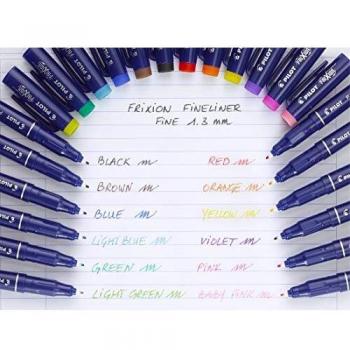 FRIXION FINELINER
FINE 1.3 mm
BLACK m
RED m
BROWN m
ORANGE m
BLUE m
YELLOW m
LIGHT BLUE m
VIOLET m
GREEN m
PINK m
LIGHT GREEN m
BABY PINK m
PILOT
PILOT
PILOT
PILOT
PILOT
PILOT
PILOT
PILOT
PILOT